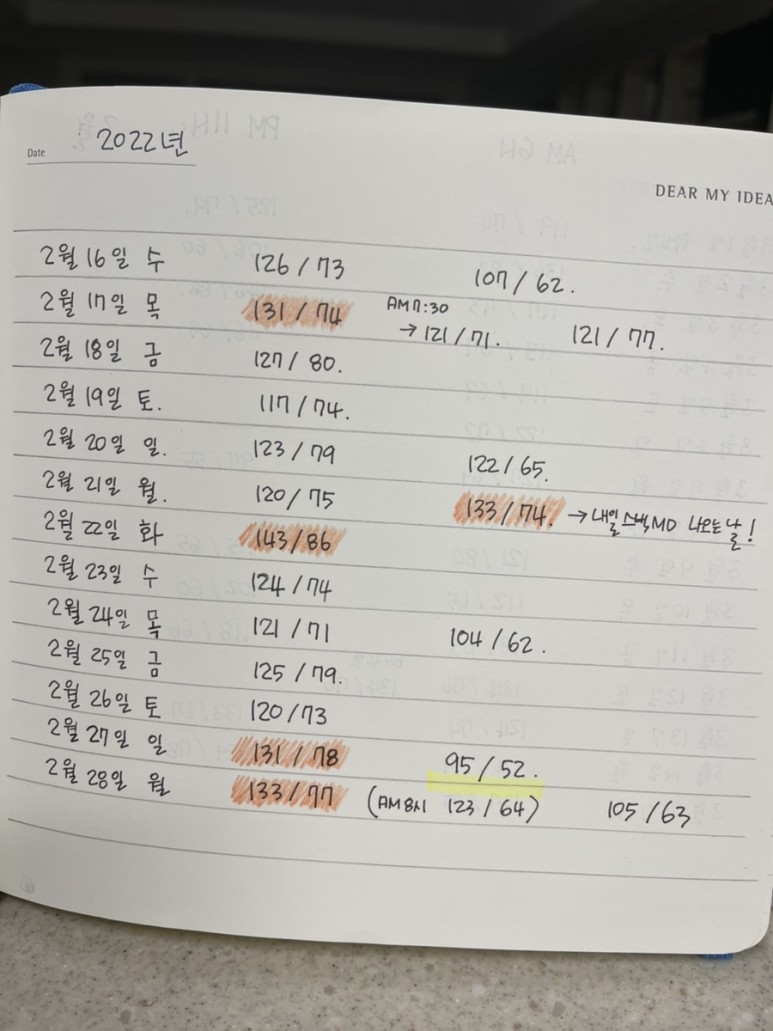 Date 2022년
DEAR MY IDEA
2월 16일 수 126/73 107/62.
2월 17일 목 131/74 AM 7:30 →121/71. 121/77.
2월 18일 금 127/80.
2월 19일 토. 117/74.
2월 20일 일. 123/79 122/65.
2월 21일 월. 120/75 133/74. →내일 스벅MD 나오는 날!
2월 22일 화 143/86
2월 23일 수 124/74
2월 24일 목 121/71 104/62.
2월 25일 금 125/79.
2월 26일 토 120/73
2월 27일 일 131/78 95/52.
2월 28일 월 133/77 (AM 8시 123/64) 105/63